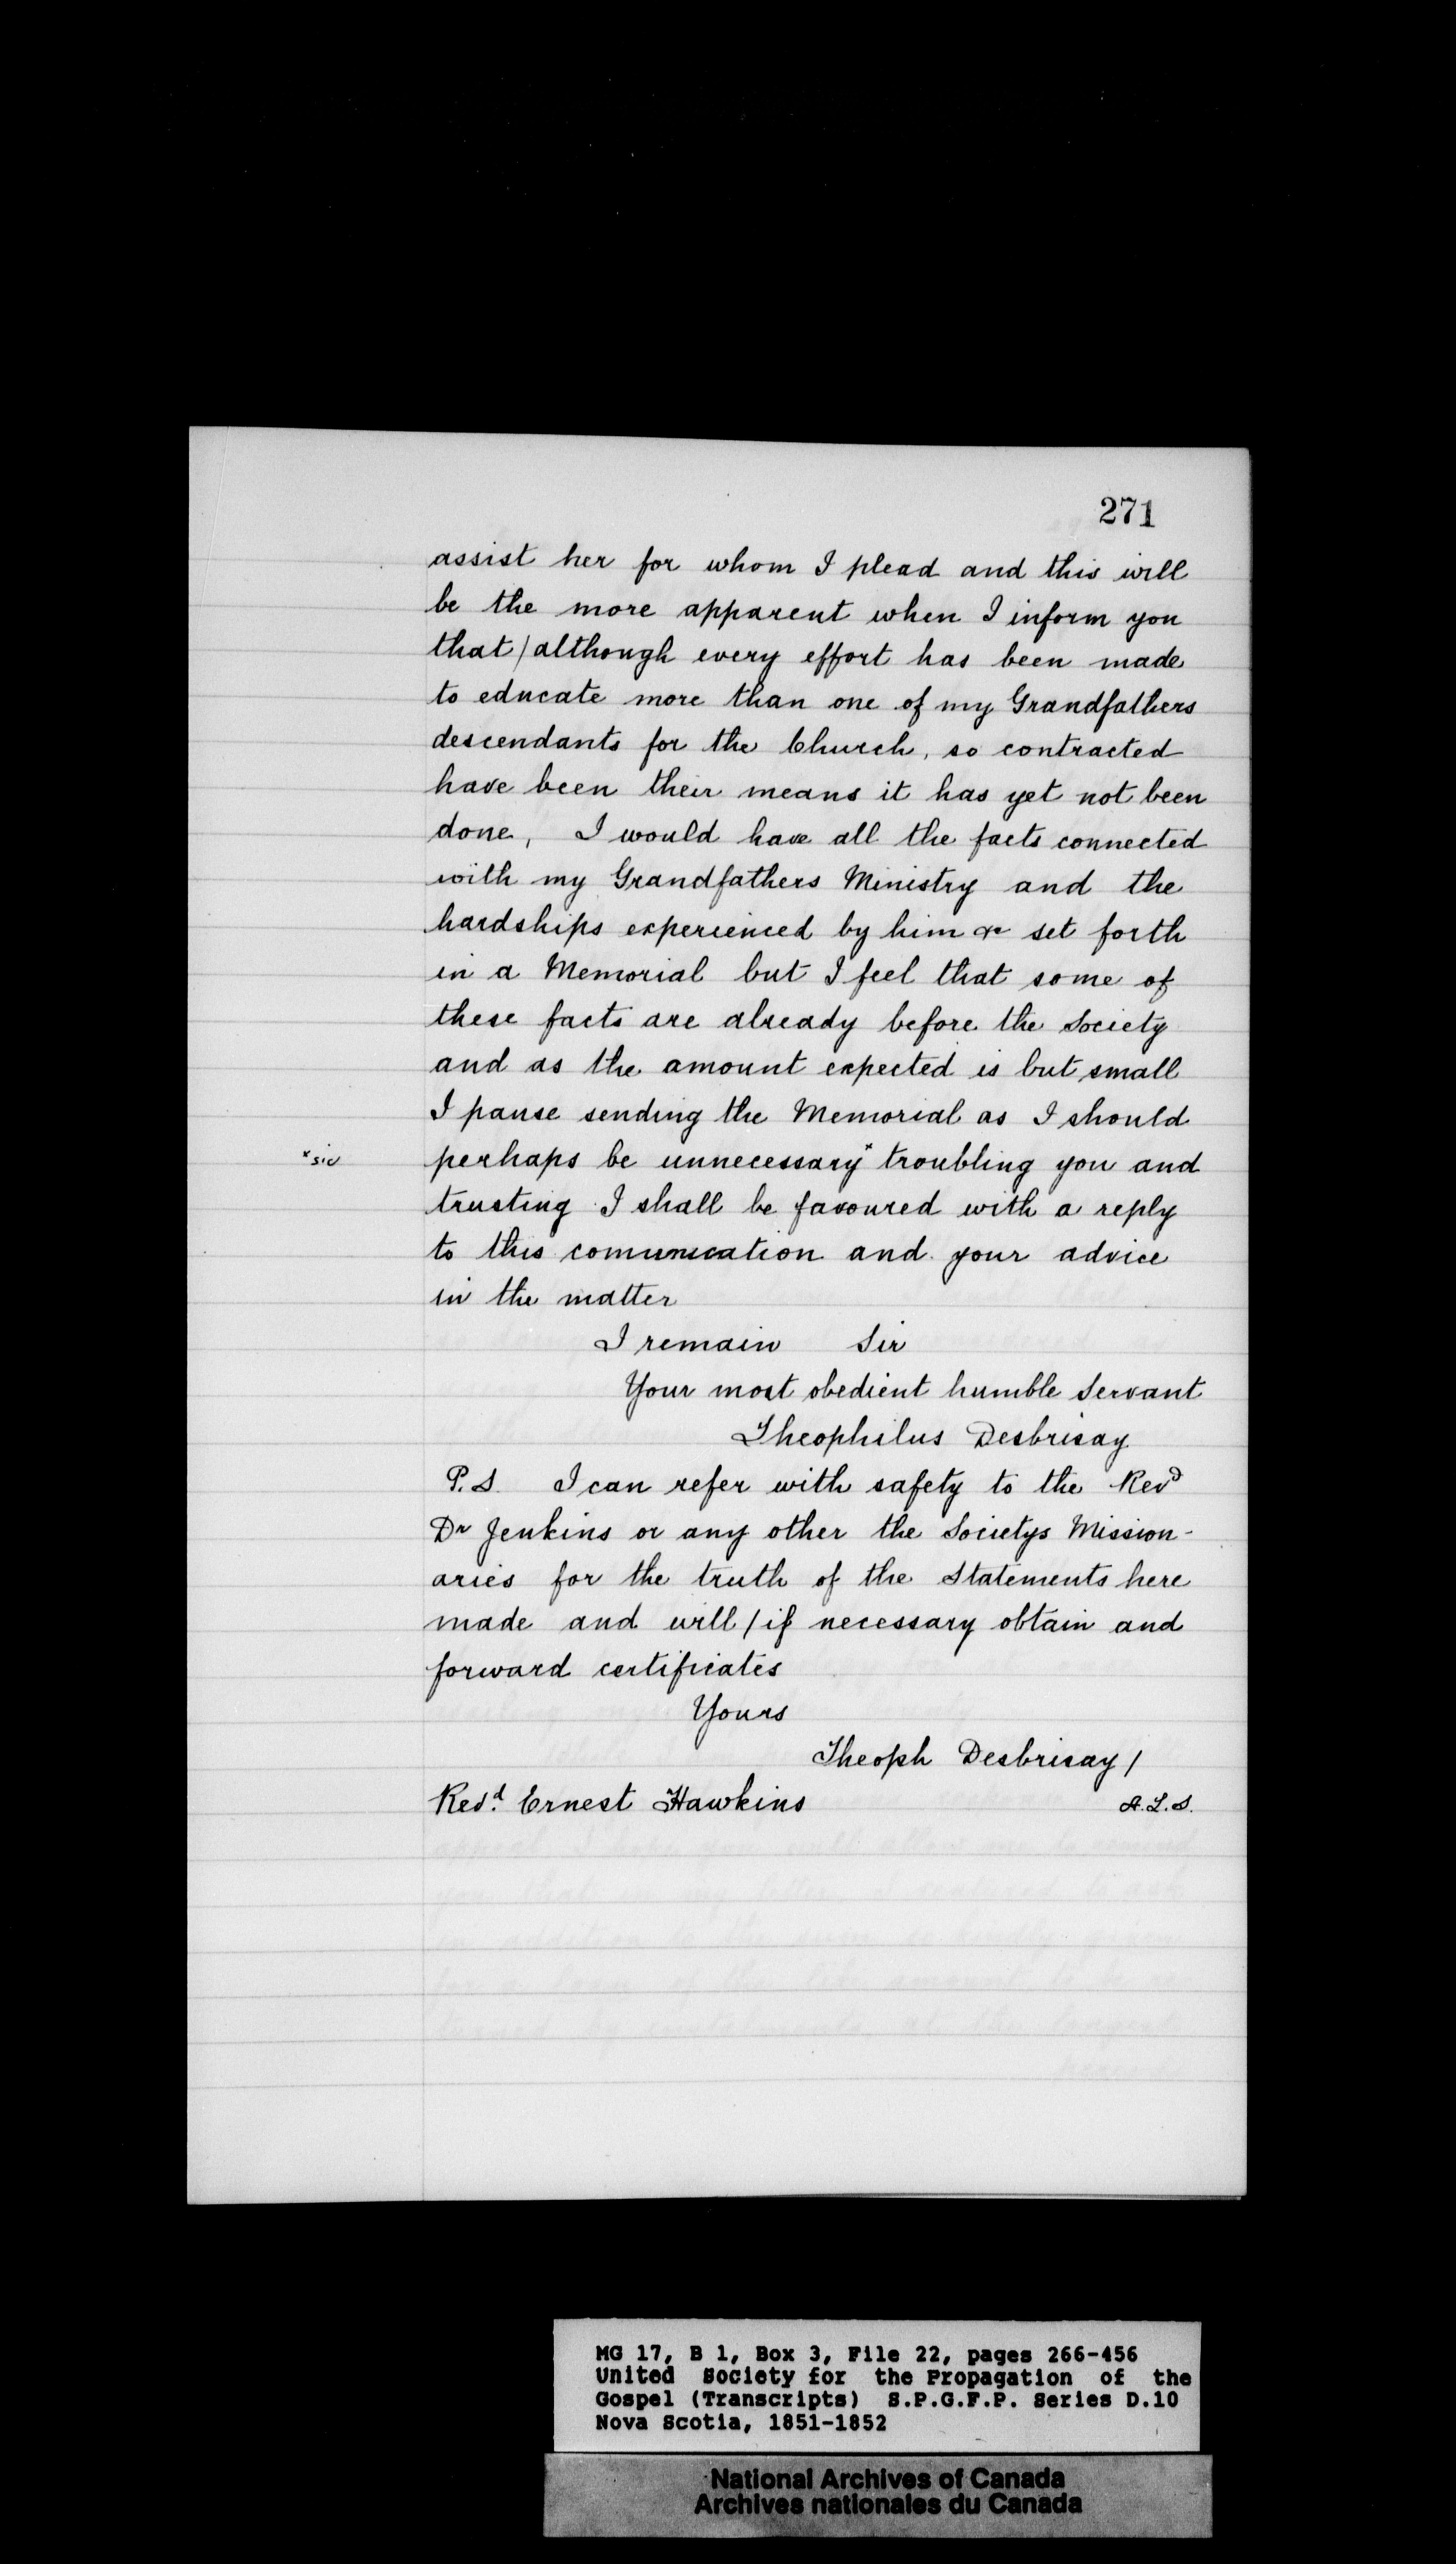 271
assist her for whom I plead and this will
be the more apparent when I inform you
that / although every effort has been made
to educate more than one of my Grandfathers
descendants for the Church, so contracted
have been their means it has yet not been
done, I would have all the facts connected
with my Grandfathers Ministry and the
hardships experienced by him &c set forth
in a Memorial but I feel that some of
these facts are already before the Society
and as the amount expected is but small
I pause sending the Memorial as I should
*sic perhaps be unnecessary* troubling you and
trusting I shall be favoured with a reply
to this comunication and your advice
in the matter
I remain Sir
Your most obedient humble Servant
Theophilus Desbrisay
P.S. I can refer with safety to the Revd
Dr Jenkins or any other the Societys Mission-
aries for the truth of the Statements here
made and will / if necessary obtain and
forward certificates
Yours
Theoph Desbrisay /
Revd. Ernest Hawkins A.L.S.
MG 17, B 1, Box 3, File 22, pages 266-456
United Society for the Propagation of the
Gospel (Transcripts) S.P.G.F.P. Series D.10
Nova Scotia, 1851-1852
National Archives of Canada
Archives nationales du Canada